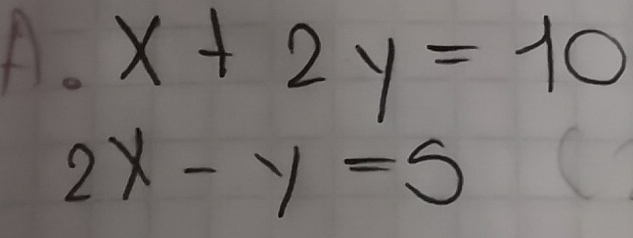 A. x + 2y = 10
2x - y = 5